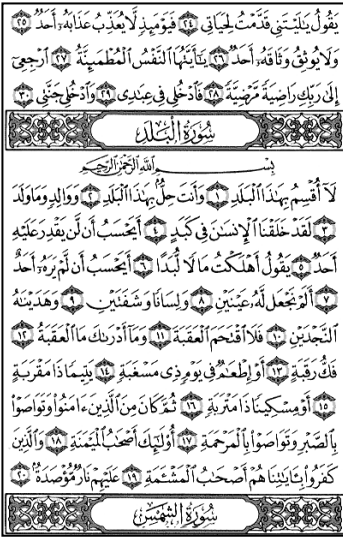 يَقُولُ يَٰلَيْتَنِى قَدَّمْتُ لِحَيَاتِى ٢٤ فَيَوْمَئِذٍ لَّا يُعَذِّبُ عَذَابَهُۥٓ أَحَدٌ ٢٥
وَلَا يُوثِقُ وَثَاقَهُۥٓ أَحَدٌ ٢٦ يَٰٓأَيَّتُهَا ٱلنَّفْسُ ٱلْمُطْمَئِنَّةُ ٢٧ ٱرْجِعِىٓ
إِلَىٰ رَبِّكِ رَاضِيَةً مَّرْضِيَّةً ٢٨ فَٱدْخُلِى فِى عِبَٰدِى ٢٩ وَٱدْخُلِى جَنَّتِى ٣٠
سُورَةُ الْبَلَدِ
بِسْمِ ٱللَّهِ ٱلرَّحْمَٰنِ ٱلرَّحِيمِ
لَآ أُقْسِمُ بِهَٰذَا ٱلْبَلَدِ ١ وَأَنتَ حِلٌّۢ بِهَٰذَا ٱلْبَلَدِ ٢ وَوَالِدٍ وَمَا وَلَدَ
٣ لَقَدْ خَلَقْنَا ٱلْإِنسَٰنَ فِى كَبَدٍ ٤ أَيَحْسَبُ أَن لَّن يَقْدِرَ عَلَيْهِ
أَحَدٌ ٥ يَقُولُ أَهْلَكْتُ مَالًا لُّبَدًا ٦ أَيَحْسَبُ أَن لَّمْ يَرَهُۥٓ أَحَدٌ
٧ أَلَمْ نَجْعَل لَّهُۥ عَيْنَيْنِ ٨ وَلِسَانًا وَشَفَتَيْنِ ٩ وَهَدَيْنَٰهُ
ٱلنَّجْدَيْنِ ١٠ فَلَا ٱقْتَحَمَ ٱلْعَقَبَةَ ١١ وَمَآ أَدْرَىٰكَ مَا ٱلْعَقَبَةُ ١٢
فَكُّ رَقَبَةٍ ١٣ أَوْ إِطْعَٰمٌ فِى يَوْمٍ ذِى مَسْغَبَةٍ ١٤ يَتِيمًا ذَا مَقْرَبَةٍ
١٥ أَوْ مِسْكِينًا ذَا مَتْرَبَةٍ ١٦ ثُمَّ كَانَ مِنَ ٱلَّذِينَ ءَامَنُوا۟ وَتَوَاصَوْا۟
بِٱلصَّبْرِ وَتَوَاصَوْا۟ بِٱلْمَرْحَمَةِ ١٧ أُو۟لَٰٓئِكَ أَصْحَٰبُ ٱلْمَيْمَنَةِ ١٨ وَٱلَّذِينَ
كَفَرُوا۟ بِـَٔايَٰتِنَا هُمْ أَصْحَٰبُ ٱلْمَشْـَٔمَةِ ١٩ عَلَيْهِمْ نَارٌ مُّؤْصَدَةٌۢ ٢٠
سُورَةُ الشَّمْسِ